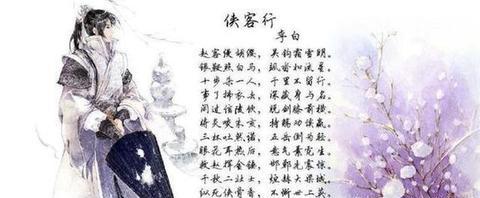 侠客行
李白
赵客缦胡缨，吴钩霜雪明。
银鞍照白马，飒沓如流星。
十步杀一人，千里不留行。
事了拂衣去，深藏身与名。
闲过信陵饮，脱剑膝前横。
将炙啖朱亥，持觞劝侯嬴。
三杯吐然诺，五岳倒为轻。
眼花耳热后，意气素霓生。
救赵挥金锤，邯郸先震惊。
千秋二壮士，烜赫大梁城。
纵死侠骨香，不惭世上英。